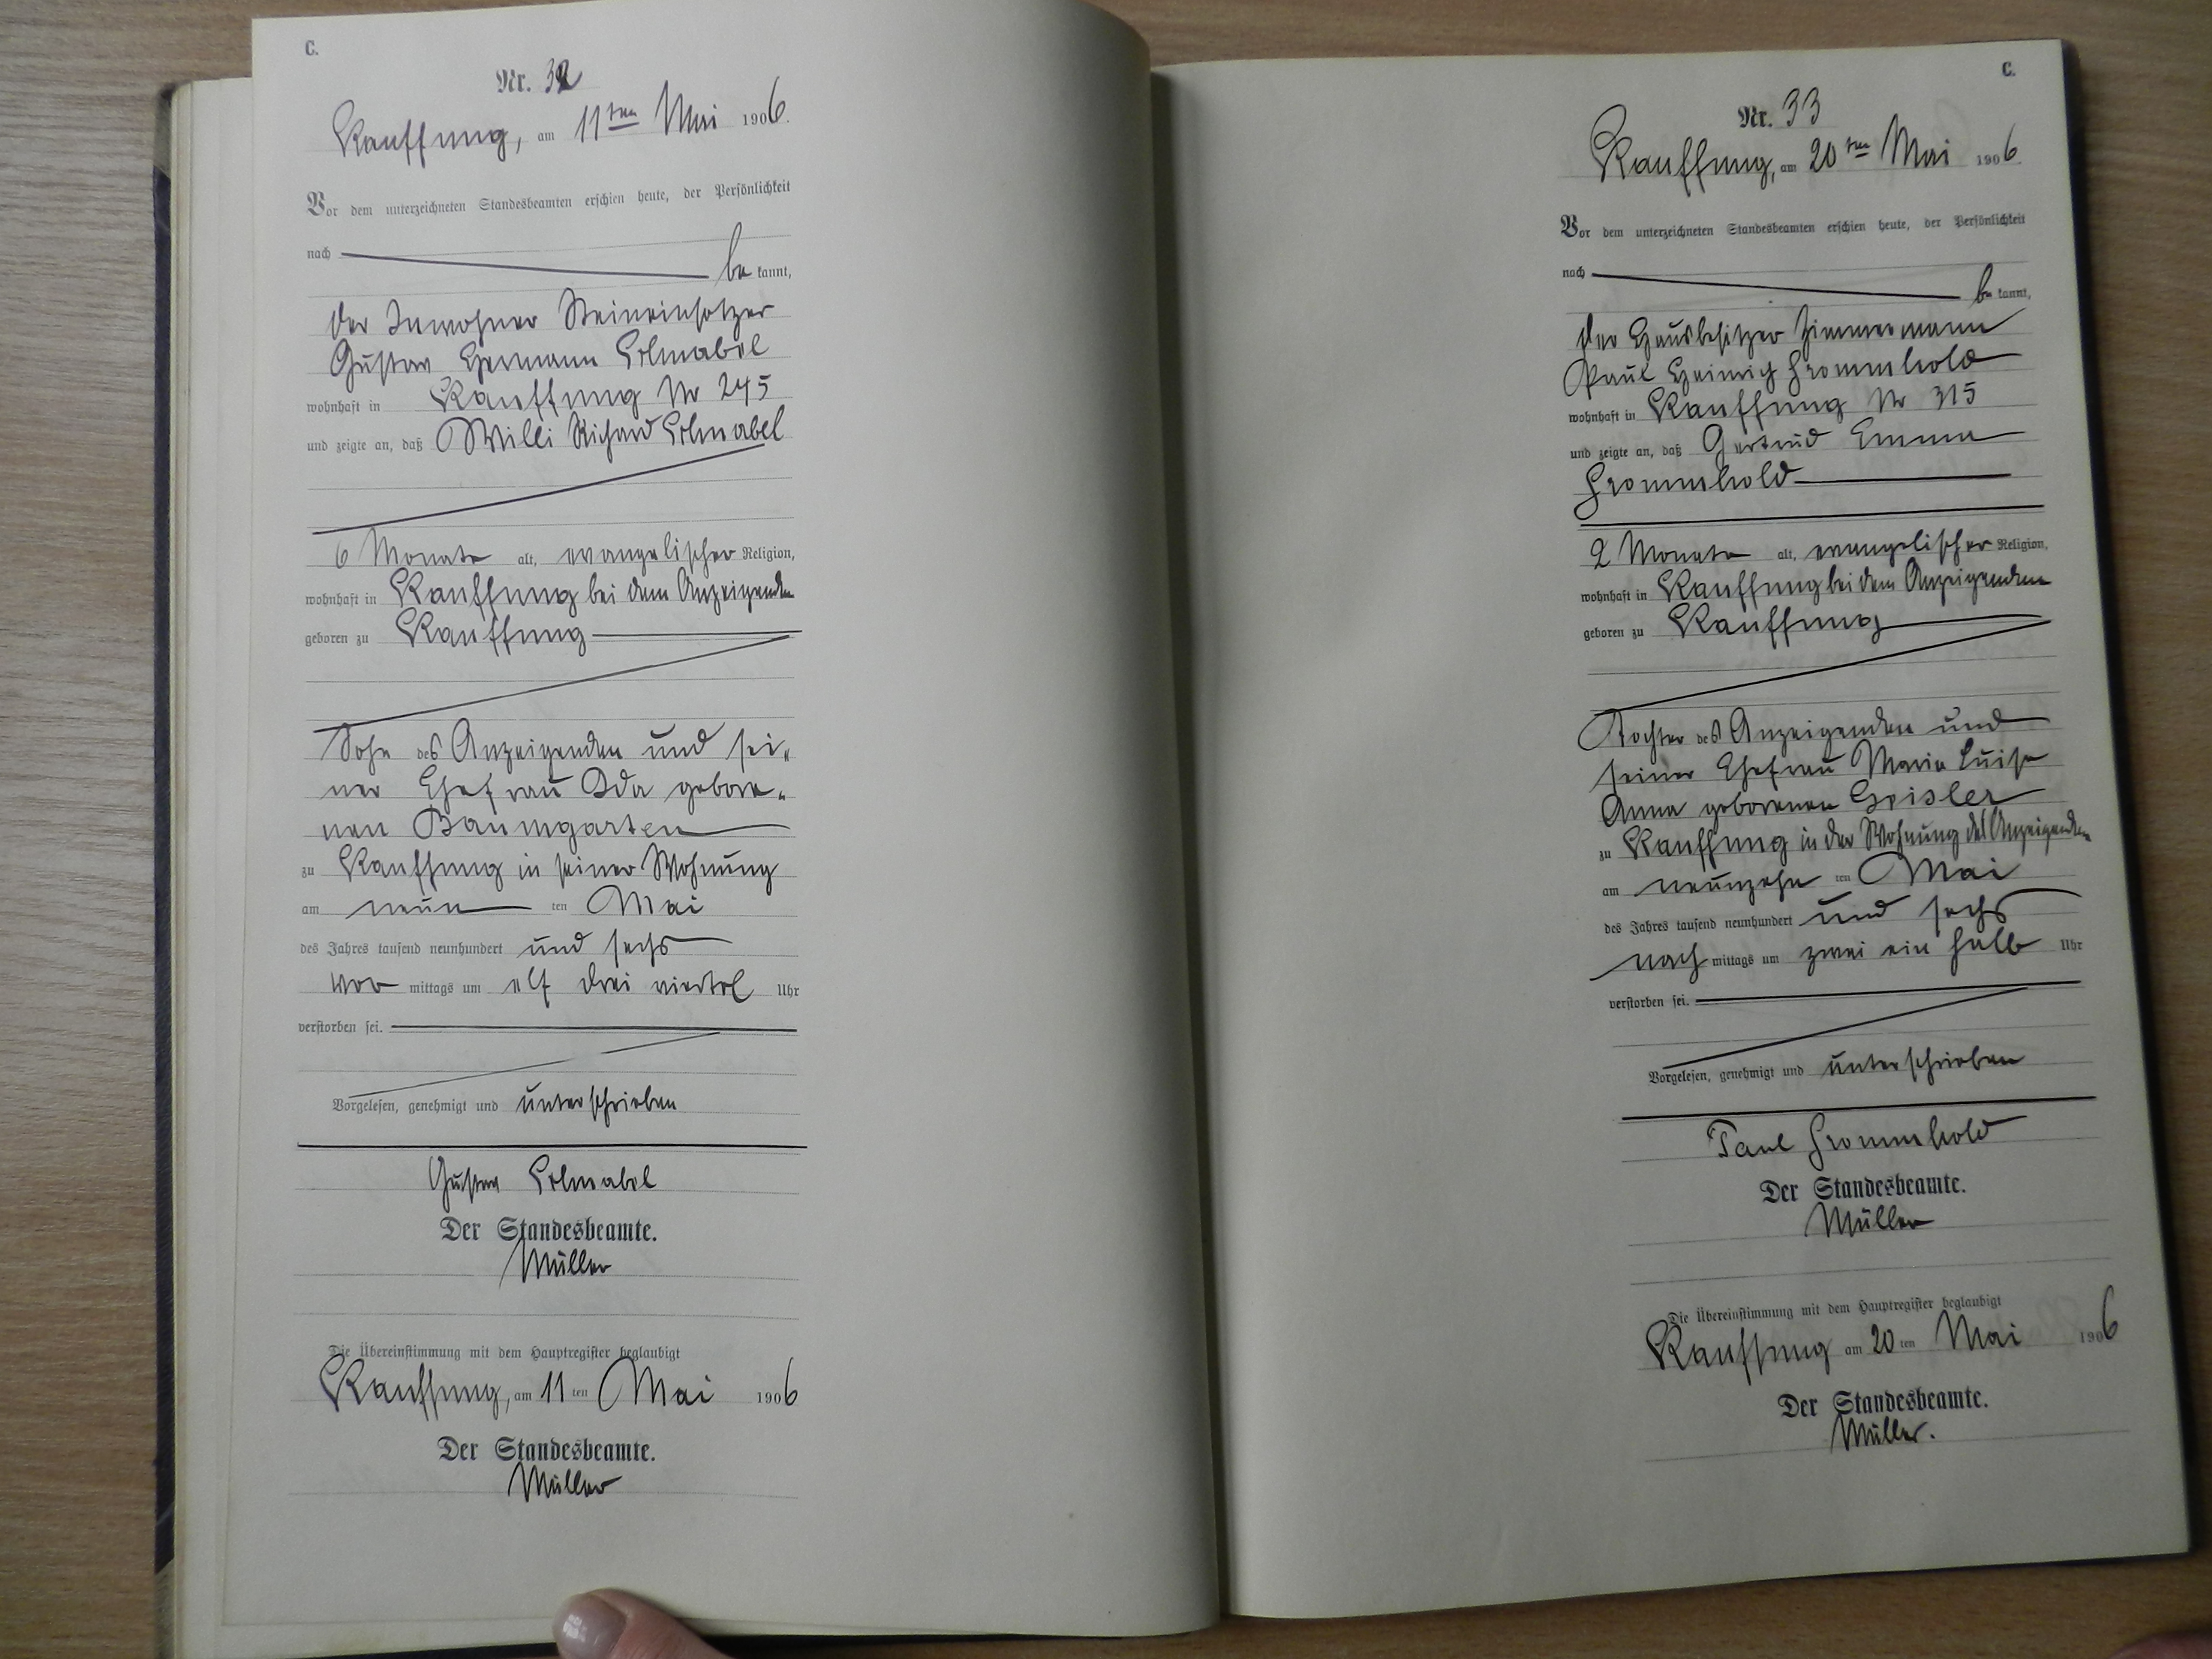 C.
Nr. 32
Kauffung, am 11ten Mai 1906.
Vor dem unterzeichneten Standesbeamten erschien heute, der Persönlichkeit
nach be kannt,
der Inwohner Steineinsetzer
Gustav Hermann
wohnhaft in Kauffung Nr 245
und zeigte an, daß Willi Richard
6 Monate alt, evangelischer Religion,
wohnhaft in Kauffung bei dem Anzeigenden
geboren zu Kauffung
Sohn des Anzeigenden und sei„
ner Ehefrau Ida gebore„
nen Baumgarten
zu Kauffung in seiner Wohnung
am neun ten Mai
des Jahres tausend neunhundert und sechs
vor mittags um elf drei viertel Uhr
verstorben sei.
Vorgelesen, genehmigt und unterschrieben
Gustav
Der Standesbeamte.
Müller
Die Übereinstimmung mit dem Hauptregister beglaubigt
Kauffung, am 11 ten Mai 1906
Der Standesbeamte.
Müller
C.
Nr. 33
Kauffung, am 20ten Mai 1906.
Vor dem unterzeichneten Standesbeamten erschien heute, der Persönlichkeit
nach be kannt,
der Hausbesitzer Zimmermann
Paul Heinrich Frommhold
wohnhaft in Kauffung Nr 315
und zeigte an, daß Gertrud Emma
Frommhold
2 Monate alt, evangelischer Religion,
wohnhaft in Kauffung bei dem Anzeigenden
geboren zu Kauffung
Tochter des Anzeigenden und
seiner Ehefrau Maria Luise
Anna geborenen Geisler
zu Kauffung in der Wohnung des Anzeigenden
am neunzehn ten Mai
des Jahres tausend neunhundert und sechs
nach mittags um zwei ein halb Uhr
verstorben sei.
Vorgelesen, genehmigt und unterschrieben
Paul Frommhold
Der Standesbeamte.
Müller
Die Übereinstimmung mit dem Hauptregister beglaubigt
Kauffung am 20 ten Mai 1906
Der Standesbeamte.
Müller.